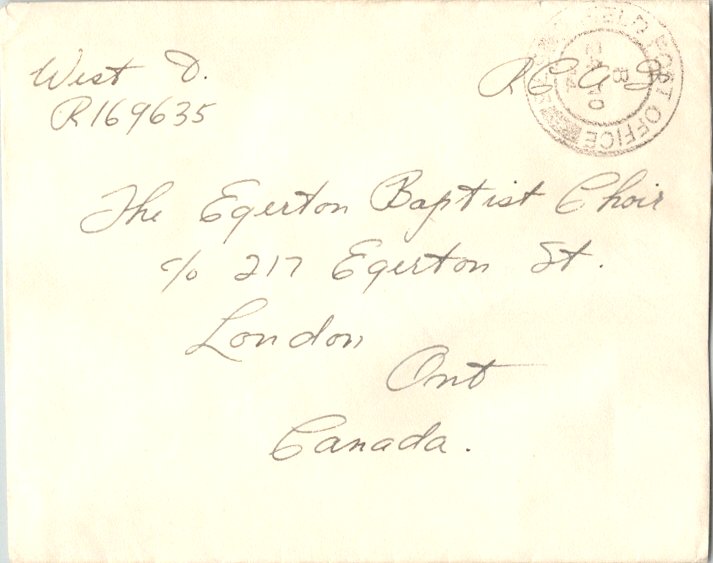 West D.
R169635
RCAF
FIELD POST OFFICE
The Egerton Baptist Choir
c/o 217 Egerton St.
London
Ont
Canada.